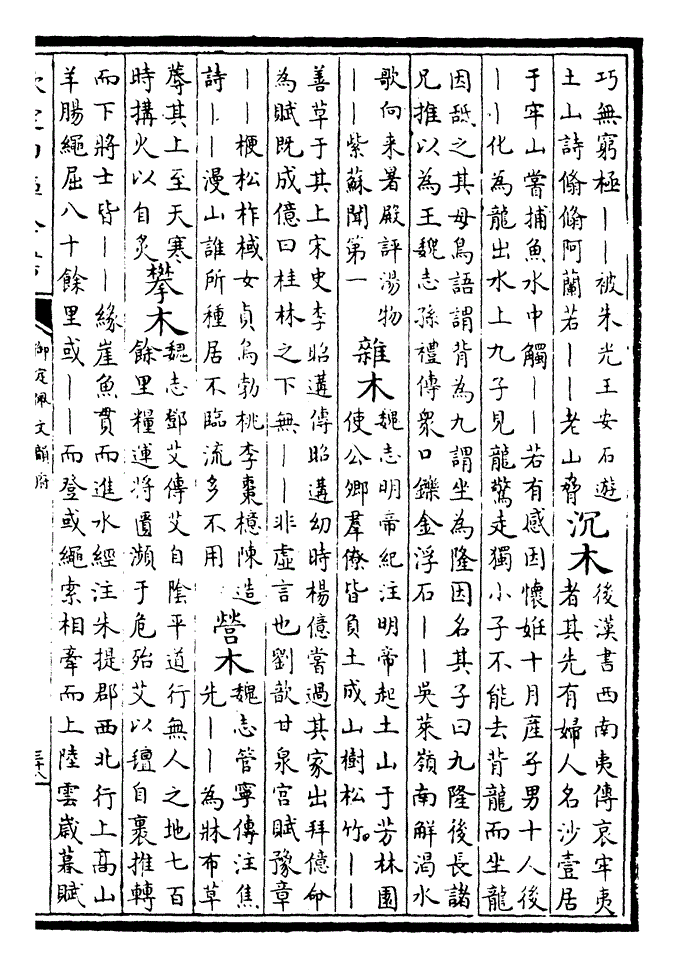 巧無窮極｜｜被朱光王安石遊
土山詩翛翛阿蘭若｜｜老山脅
沉木
後漢書西南夷傳哀牢夷
者其先有婦人名沙壹居
于牢山嘗捕魚水中觸｜｜若有感因懷妊十月產子男十人後
｜｜化為龍出水上九子見龍驚走獨小子不能去背龍而坐龍
因舐之其母鳥語謂背為九謂坐為隆因名其子曰九隆後長諸
兄推以為王魏志孫禮傳衆口鑠金浮石｜｜吳萊嶺南解渴水
歌向来暑殿評湯物
｜｜紫蘇聞第一
雜木
魏志明帝紀注明帝起土山于芳林園
使公卿羣僚皆負土成山樹松竹｜｜
善草于其上宋史李昭遘傳昭遘幼時楊億嘗過其家出拜億命
為賦既成億曰桂林之下無｜｜非虛言也劉歆甘泉宮賦豫章
｜｜楩松柞棫女貞烏勃桃李棗檍陳造
詩｜｜漫山誰所種居不臨流多不用
營木
魏志管寧傳注焦
先｜｜為牀布草
蓐其上至天寒
時搆火以自炙
攀木
魏志鄧艾傳艾自陰平道行無人之地七百
餘里糧運將匱瀕于危殆艾以氊自裹推轉
而下將士皆｜｜緣崖魚貫而進水經注朱提郡西北行上高山
羊腸繩屈八十餘里或｜｜而登或繩索相牽而上陸雲歲暮賦
御定佩文韻府